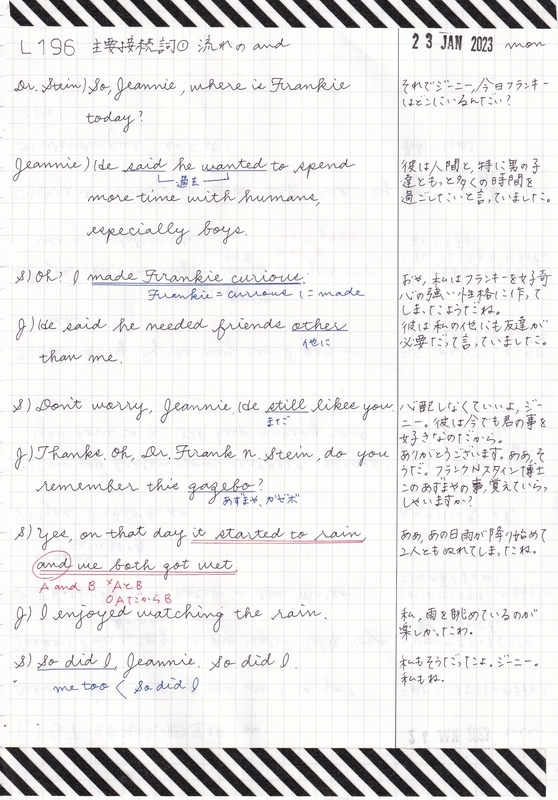 L196 主要接続詞① 流れの and
23 JAN 2023 mon
Dr. Stein) So, Jeannie, where is Frankie
today?
それでジーニー、今日フランキー
はどこにいるんだい?
Jeannie) He said he wanted to spend
過去
more time with humans,
especially boys.
彼は人間と、特に男の子
達ともっと多くの時間を
過ごしたいと言っていました。
S) Oh? I made Frankie curious.
Frankie = curious に made
おや、私はフランキーを好奇
心の強い性格に作って
しまったようだね。
J) He said he needed friends other
他に
than me.
彼は私の他にも友達が
必要だって言っていました。
S) Don't worry, Jeannie. He still likes you.
まだ
心配しなくていいよ、ジー
ニー。彼は今でも君の事を
好きなのだから。
J) Thanks. Oh, Dr. Frank n. Stein, do you
remember this gazebo?
あずまや、ガゼボ
ありがとうございます。ああ、そ
うだ。フランクNスタイン博士
このあずまやの事、覚えていらっ
しゃいますか?
S) Yes, on that day it started to rain,
and we both got wet.
A and B ×AとB
○AだからB
ああ、あの日雨が降り始めて
2人ともぬれてしまったね。
J) I enjoyed watching the rain.
私、雨を眺めているのが
楽しかったわ。
S) So did I, Jeannie. So did I.
me too < So did I
私もそうだったよ。ジーニー。
私もね。